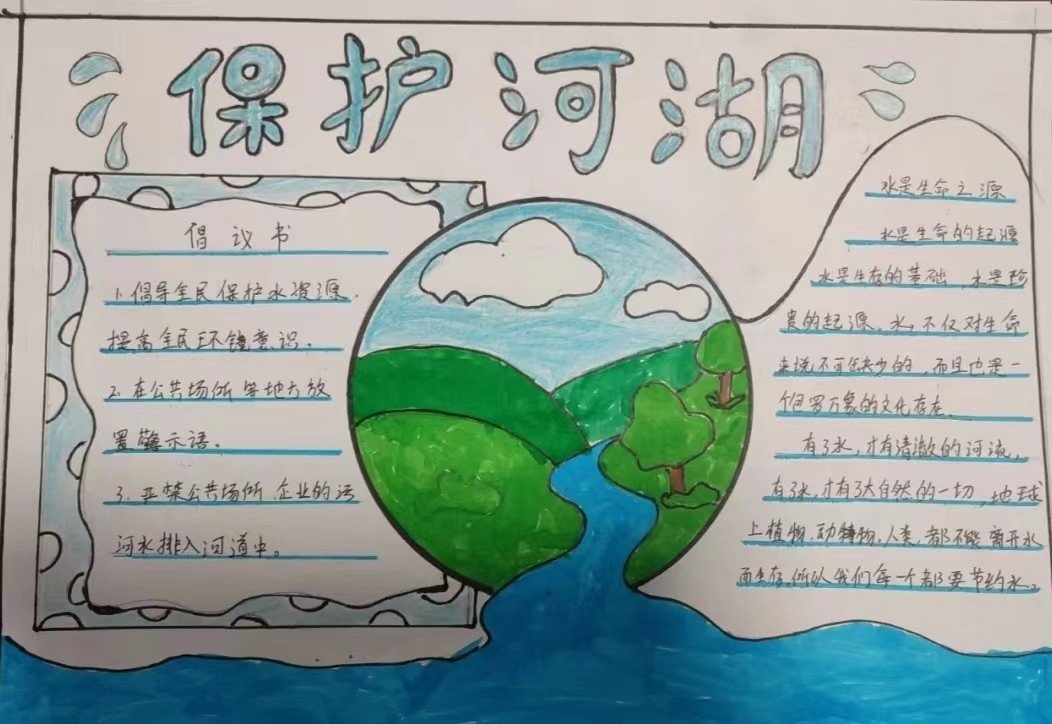 保护河湖
倡议书
1、倡导全民保护水资源，
提高全民环镜意识。
2、在公共场所等地方放
置警示语。
3、严禁公共场所、企业的污
河水排入河道中。
水是生命之源
水是生命的起源
水是生存的基础，水是珍
贵的起源。水，不仅对生命
来说不可缺少的，而且也是一
个包罗万象的文化存在。
有了水，才有清澈的河流，
有了水，才有了大自然的一切，地球
上植物，动物，人类，都不能离开水
而生存，所以我们每一个都要节约水。